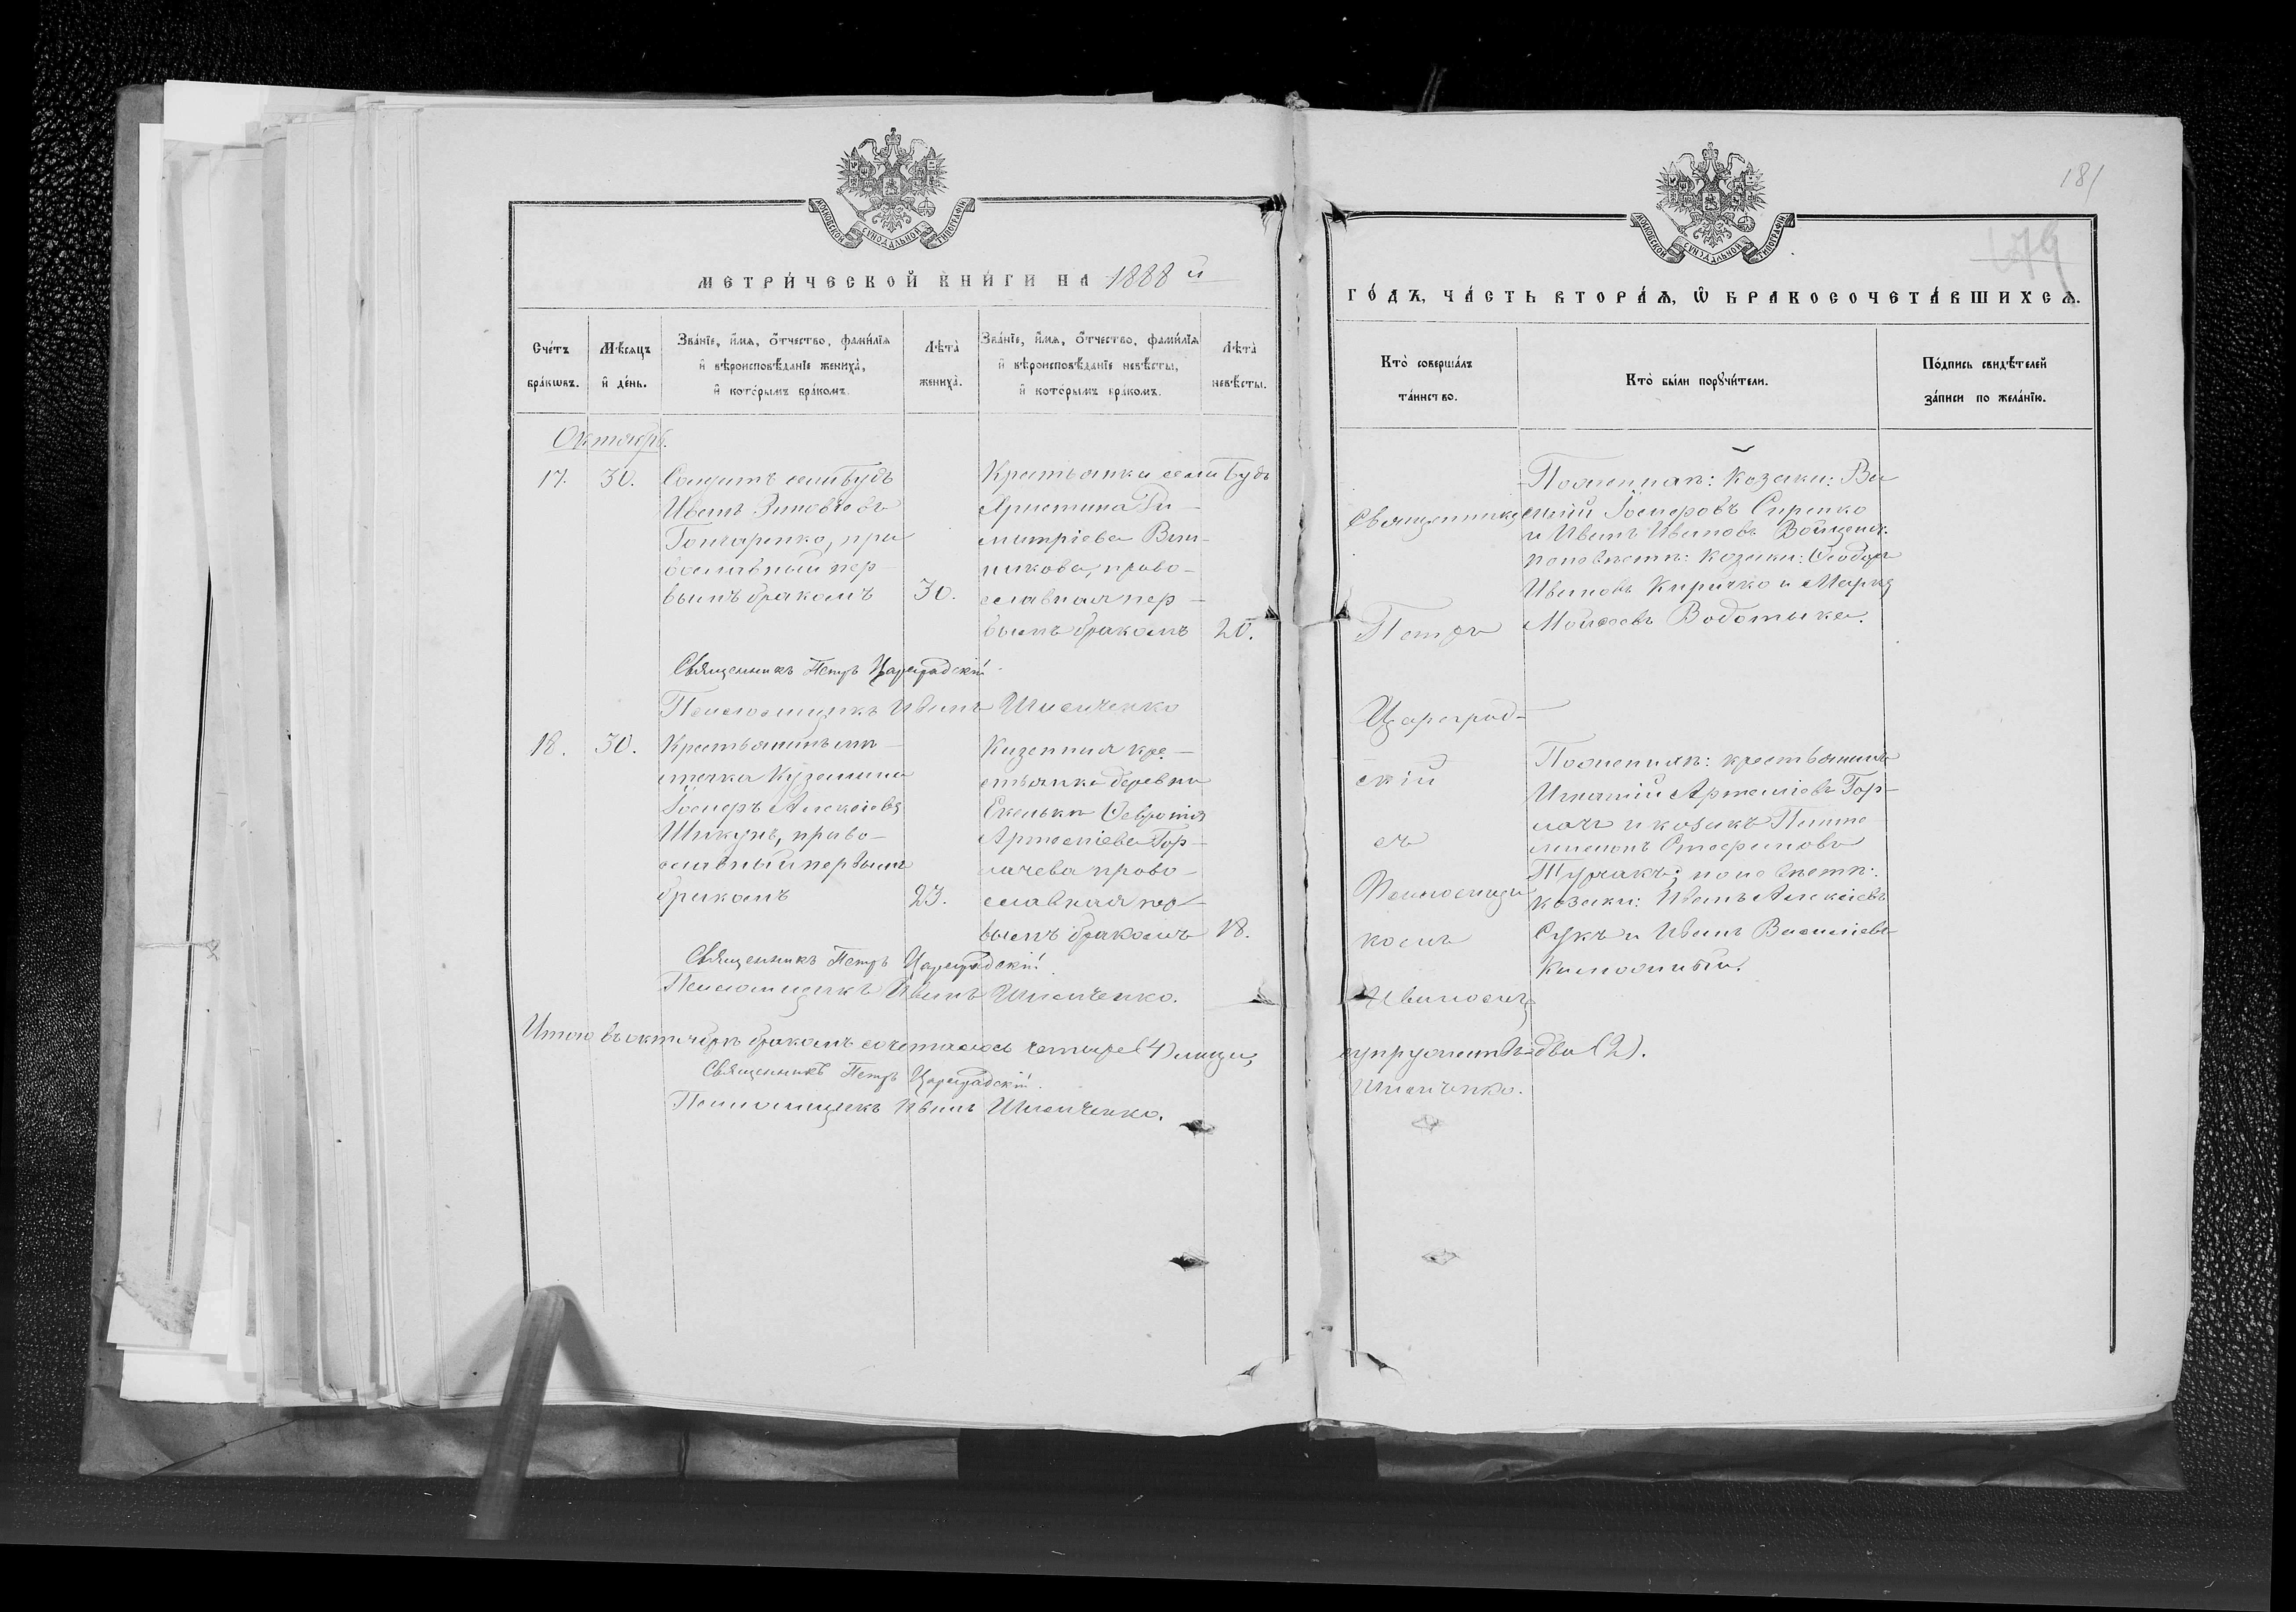 МОСКОВСКОЙ СѴНОДАЛЬНОЙ ТИПОГРАФІИ
МЕТРИ́ЧЕСКОЙ КНИ́ГИ НА 1888 й
Сче́тъ бра́кωвъ.
Мѣ́сяцъ и҆ де́нь.
Зва́нїе, и҆́мѧ, ѻ҆́тчество, фами́лїѧ
и҆ вѣроисповѣ́данїе жениха̀,
и҆ кото́рымъ бра́комъ.
Лѣта̀ жениха̀.
Зва́нїе, и҆́мѧ, ѻ҆́тчество, фами́лїѧ
и҆ вѣроисповѣ́данїе невѣ́сты,
и҆ кото́рымъ бра́комъ.
Лѣта̀ невѣ́сты.
Октябрь.
17.
30.
Солдатъ села Будъ
Иванъ Зиновіевъ
Гончаренко, пра
вославный пер-
вымъ бракомъ
30.
Крестьянка села Будъ
Христина Ди-
митріева
никова, право-
славная пер-
вымъ бракомъ
20.
Священникъ Петръ Цареградскій
Псаломщикъ Иванъ
18.
30.
Крестьянинъ мѣ-
стечка
Іосифъ Алексіевъ
Шикунъ, право-
славный первымъ
бракомъ
23.
Казенная кре-
стьянка деревни
Евфросинія
Гор-
лачева право-
славная пер-
вымъ бракомъ
18.
Священникъ Петръ Цареградскій
Псаломщикъ Иванъ
Итого въ октябрѣ бракомъ сочеталось четыре (4) лица,
Священникъ Петръ Цареградскій.
Псаломщикъ Иванъ
181
МОСКОВСКОЙ СѴНОДАЛЬНОЙ ТИПОГРАФІИ
ГО́ДЪ, ЧА́СТЬ ВТОРА́Ѧ, Ѡ҆ БРАКОСОЧЕТА́ВШИХСѦ.
Кто̀ соверша́лъ та́инство.
Кто̀ бы́ли порꙋчи́тели.
По́дпись свидѣ́телей
за́писи по жела́нїю.
Священникъ
Петръ
Цареград-
скій
съ
Псаломщи
комъ
Иваномъ
По женихѣ: козаки: Ва
силій Іосифовъ Сиренко
и Иванъ Ивановъ
по невѣстѣ: козаки: Ѳеодоръ
Ивановъ Киричко и Марко
Моисеевъ
По женихѣ: крестьянинъ
Игнатій Гор-
лачъ и козакъ Панте
леимонъ Стефановъ
по невѣстѣ:
козаки: Иванъ Алексіевъ
Сукъ и Иванъ Василіевъ
супружествъ два (2).